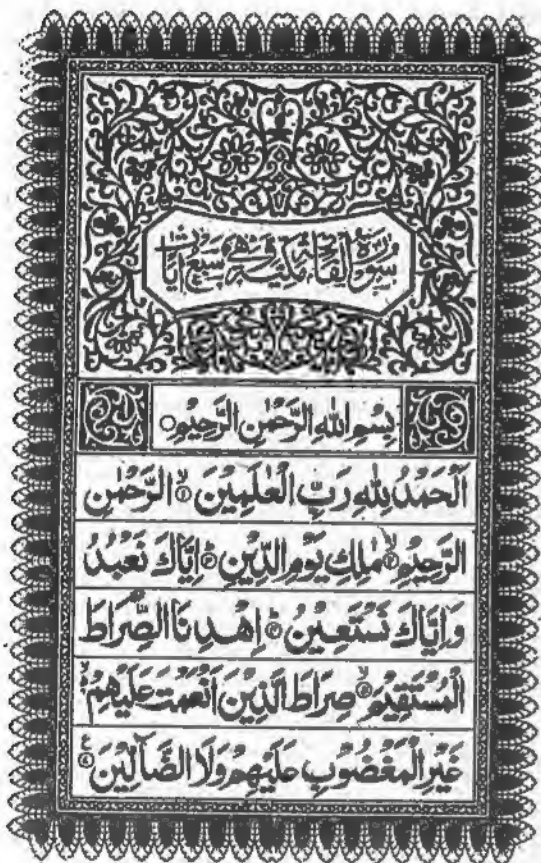 سُوْرَةُ الْفَاتِحَةِ مَكِّيَّةٌ وَّهِيَ سَبْعُ اٰيَاتٍ
بِسْمِ اللّٰهِ الرَّحْمٰنِ الرَّحِيْمِ ○
اَلْحَمْدُ لِلّٰهِ رَبِّ الْعٰلَمِيْنَ ۙ﴿۱﴾ الرَّحْمٰنِ
الرَّحِيْمِ ۙ﴿۲﴾ مٰلِكِ يَوْمِ الدِّيْنِ ؕ﴿۳﴾ اِيَّاكَ نَعْبُدُ
وَاِيَّاكَ نَسْتَعِيْنُ ؕ﴿۴﴾ اِهْدِنَا الصِّرَاطَ
الْمُسْتَقِيْمَ ۙ﴿۵﴾ صِرَاطَ الَّذِيْنَ اَنْعَمْتَ عَلَيْهِمْ ۙ﴿۶﴾
غَيْرِ الْمَغْضُوْبِ عَلَيْهِمْ وَلَا الضَّآلِّيْنَ ﴿۷﴾ ع